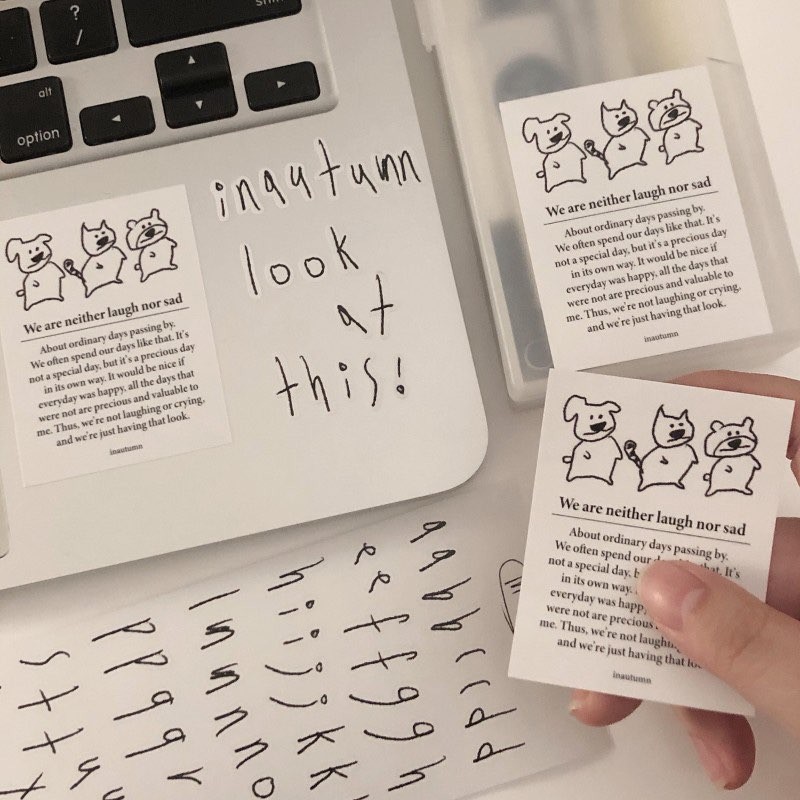 ?
/
shift
alt
option
◄
▲
▼
►
inautumn
look
at
this!
We are neither laugh nor sad
About ordinary days passing by.
We often spend our days like that. It's
not a special day, but it's a precious day
in its own way. It would be nice if
everyday was happy, all the days that
were not are precious and valuable to
me. Thus, we're not laughing or crying,
and we're just having that look.
inautumn
We are neither laugh nor sad
About ordinary days passing by.
We often spend our days like that. It's
not a special day, but it's a precious day
in its own way. It would be nice if
everyday was happy, all the days that
were not are precious and valuable to
me. Thus, we're not laughing or crying,
and we're just having that look.
inautumn
We are neither laugh nor sad
About ordinary days passing by.
We often spend our that. It's
not a special day,
in its own way.
everyday was happ
were not are precious
me. Thus, we're not laugh
and we're just having that lo
inautumn
a a b b c c d d
e e f f g g h
h i i j j k k
l n n n n o
p p q q r
s t t u